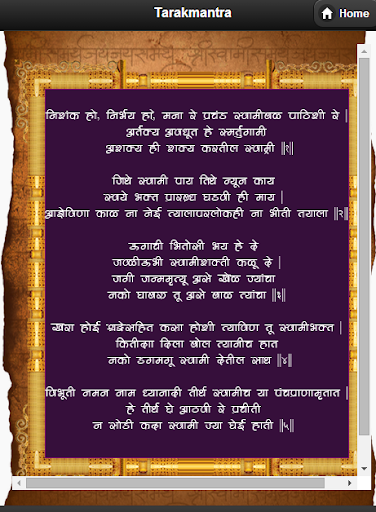 Tarakmantra
Home
निशंक हो, निर्भय हो, मना रे प्रचंड स्वामीबळ पाठिशी रे |
अतर्क्य अवधूत हे स्मर्तुगामी
अशक्य ही शक्य करतील स्वामी ||१||
जिथे स्वामी पाय तिथे न्यून काय
स्वये भक्त प्रारब्ध घडवी ही माय |
आज्ञेविणा काळ ना नेई त्याला परलोकही ना भीती तयाला ||२||
उगाची भितोसी भय हे दे
जवळीउभी स्वामीशक्ती कळू दे |
जगी जन्ममृत्यू असे खेळ ज्यांचा
नको घाबरू तू असे बाळ त्यांचा ||३||
खरा होई श्रद्देसहित कसा होशी त्याविण तू स्वामीभक्त |
कितीदा दिला बोल त्यामीच हात
नको डगमगू स्वामी देतील साथ ||४||
विभूती नमन नाम ध्यानादी तीर्थ स्वामीच या पंचप्राणामृतात |
हे तीर्थ घे आठवी रे प्रचीती
न सोडी कदा स्वामी ज्या घेई हाती ||५||